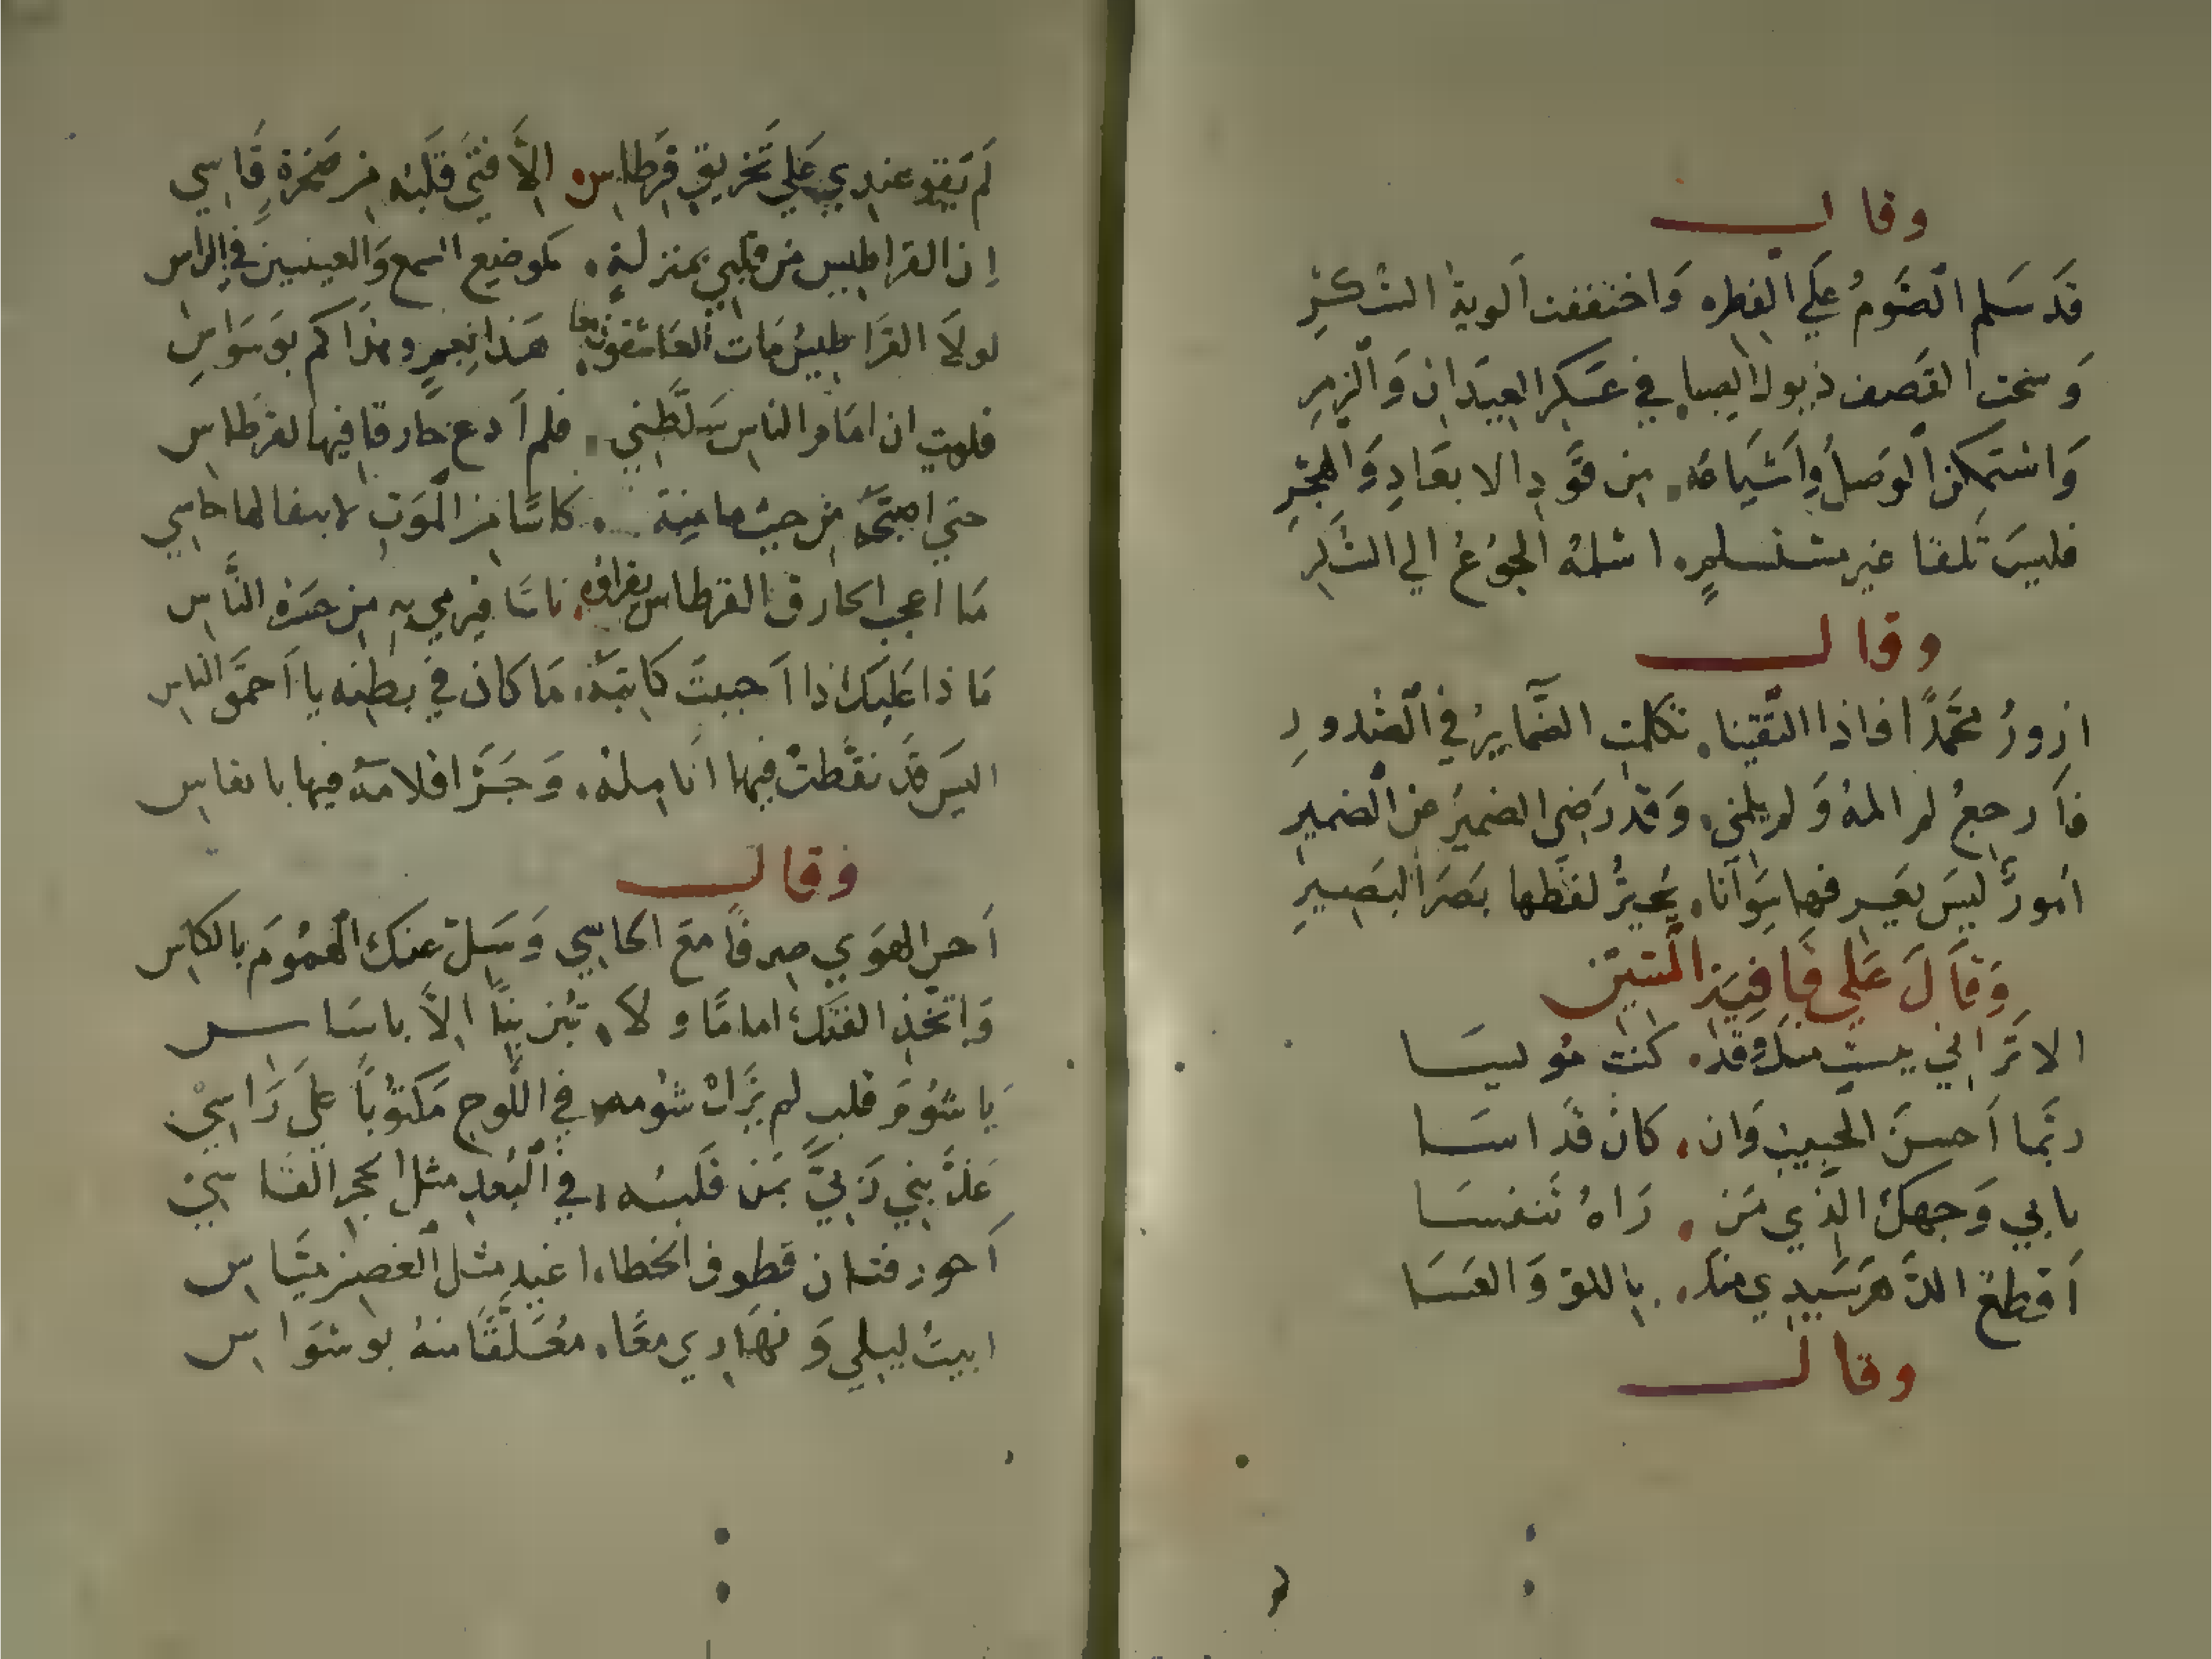 وقال
قَد سَلم الصَّومُ عَلَي الفطره وَاختفقت اَلوية الشكرِ
وَسَحَت القَصف ذيول الصبا في عَسكر العيدَان وَالزمرِ
وَاستمكن الوَصلُ وَاَشيَاعَه من قَوَدِ الابعَادِ وَالهَجرِ
فليسَ تَلقا غير مستسلمٍ اسلمهُ الجوُعُ الي السُكرِ
وقال
ازورُ محَمّداً فاذا التَقينا تكلمت الضَّمايرُ في الصُدورِ
فاَرجعُ لم المهُ وَلم يلمني وَقد رَضي الضميرُ عَن الضميرِ
اَمورٌ ليسَ يَعرفها سِوَانا يُحيرُ لفظها بَصَر البَصيرِ
وَقَالَ عَلي قَافيَة السّين
الا تَرا اني يست منك وقد كنتُ مُوسيسَا
ربَّما اَحسنَ الحبيبُ وَان كانَ قَد اسَا
بابي وَجهكَ الذي مَن رَاهُ تَنفسَا
اَقطعُ الدَّهرَ سَيدي منك باللو وَالعَسَا
وقال
لم يَقو عندي عَلي تَخريق قرطاس الاَّ فتَي قَلبُه من صَخرة قَاسي
ان القراطيس من قلبي بمنزلةٍ كموضع السمع وَالعينين في الراس
لولَا القرَاطيسُ مَات العَاشقون معا هَذا بغمٍ وهذاكم بوَسوَاسِ
فلوت ان امَام الناس سَلَّطني فلم اَدع خارقا فيها لقرطاس
حتي اصبحَّه من حيث مامنة كاسًا من الموَت لا يبقا لها حاسي
مَا اعجب الخارق القرطاس يقراه ناسًا فيرمي بهِ من حَذَر النَّاس
مَا ذا عَليكَ اذا اَحببتَ كاتبَهُ مَا كان في بطنه يا اَحمَق الناس
اليسَ قَد نقَّطتْ فيها اَناملهُ وَجَرَّ اقلامَهُ فيها بانفاس
وقال
اَحس الهوَي صرفاً مَعَ الحاسي وَسَل عنك الهمُومَ بالكاس
وَاتخَذ الفتكَ امامًا ولا تُبن بنًا الاَّ باسَاس
يَا شوُمَ قلبٍ لم يَزَل شوُمه في اللَّوح مَكتوُبًا عَلي رَاسي
عَذَّبني رَبيَّ بمَن قَلبُه في البُعد مثل الحجر القَاسي
اَحور فتان قطوف الخطا اغيد مثل الغصن ميَّاس
ابيتُ ليلي وَنهَاري معًا مُعَلَّقًا منهُ بوسوَاس